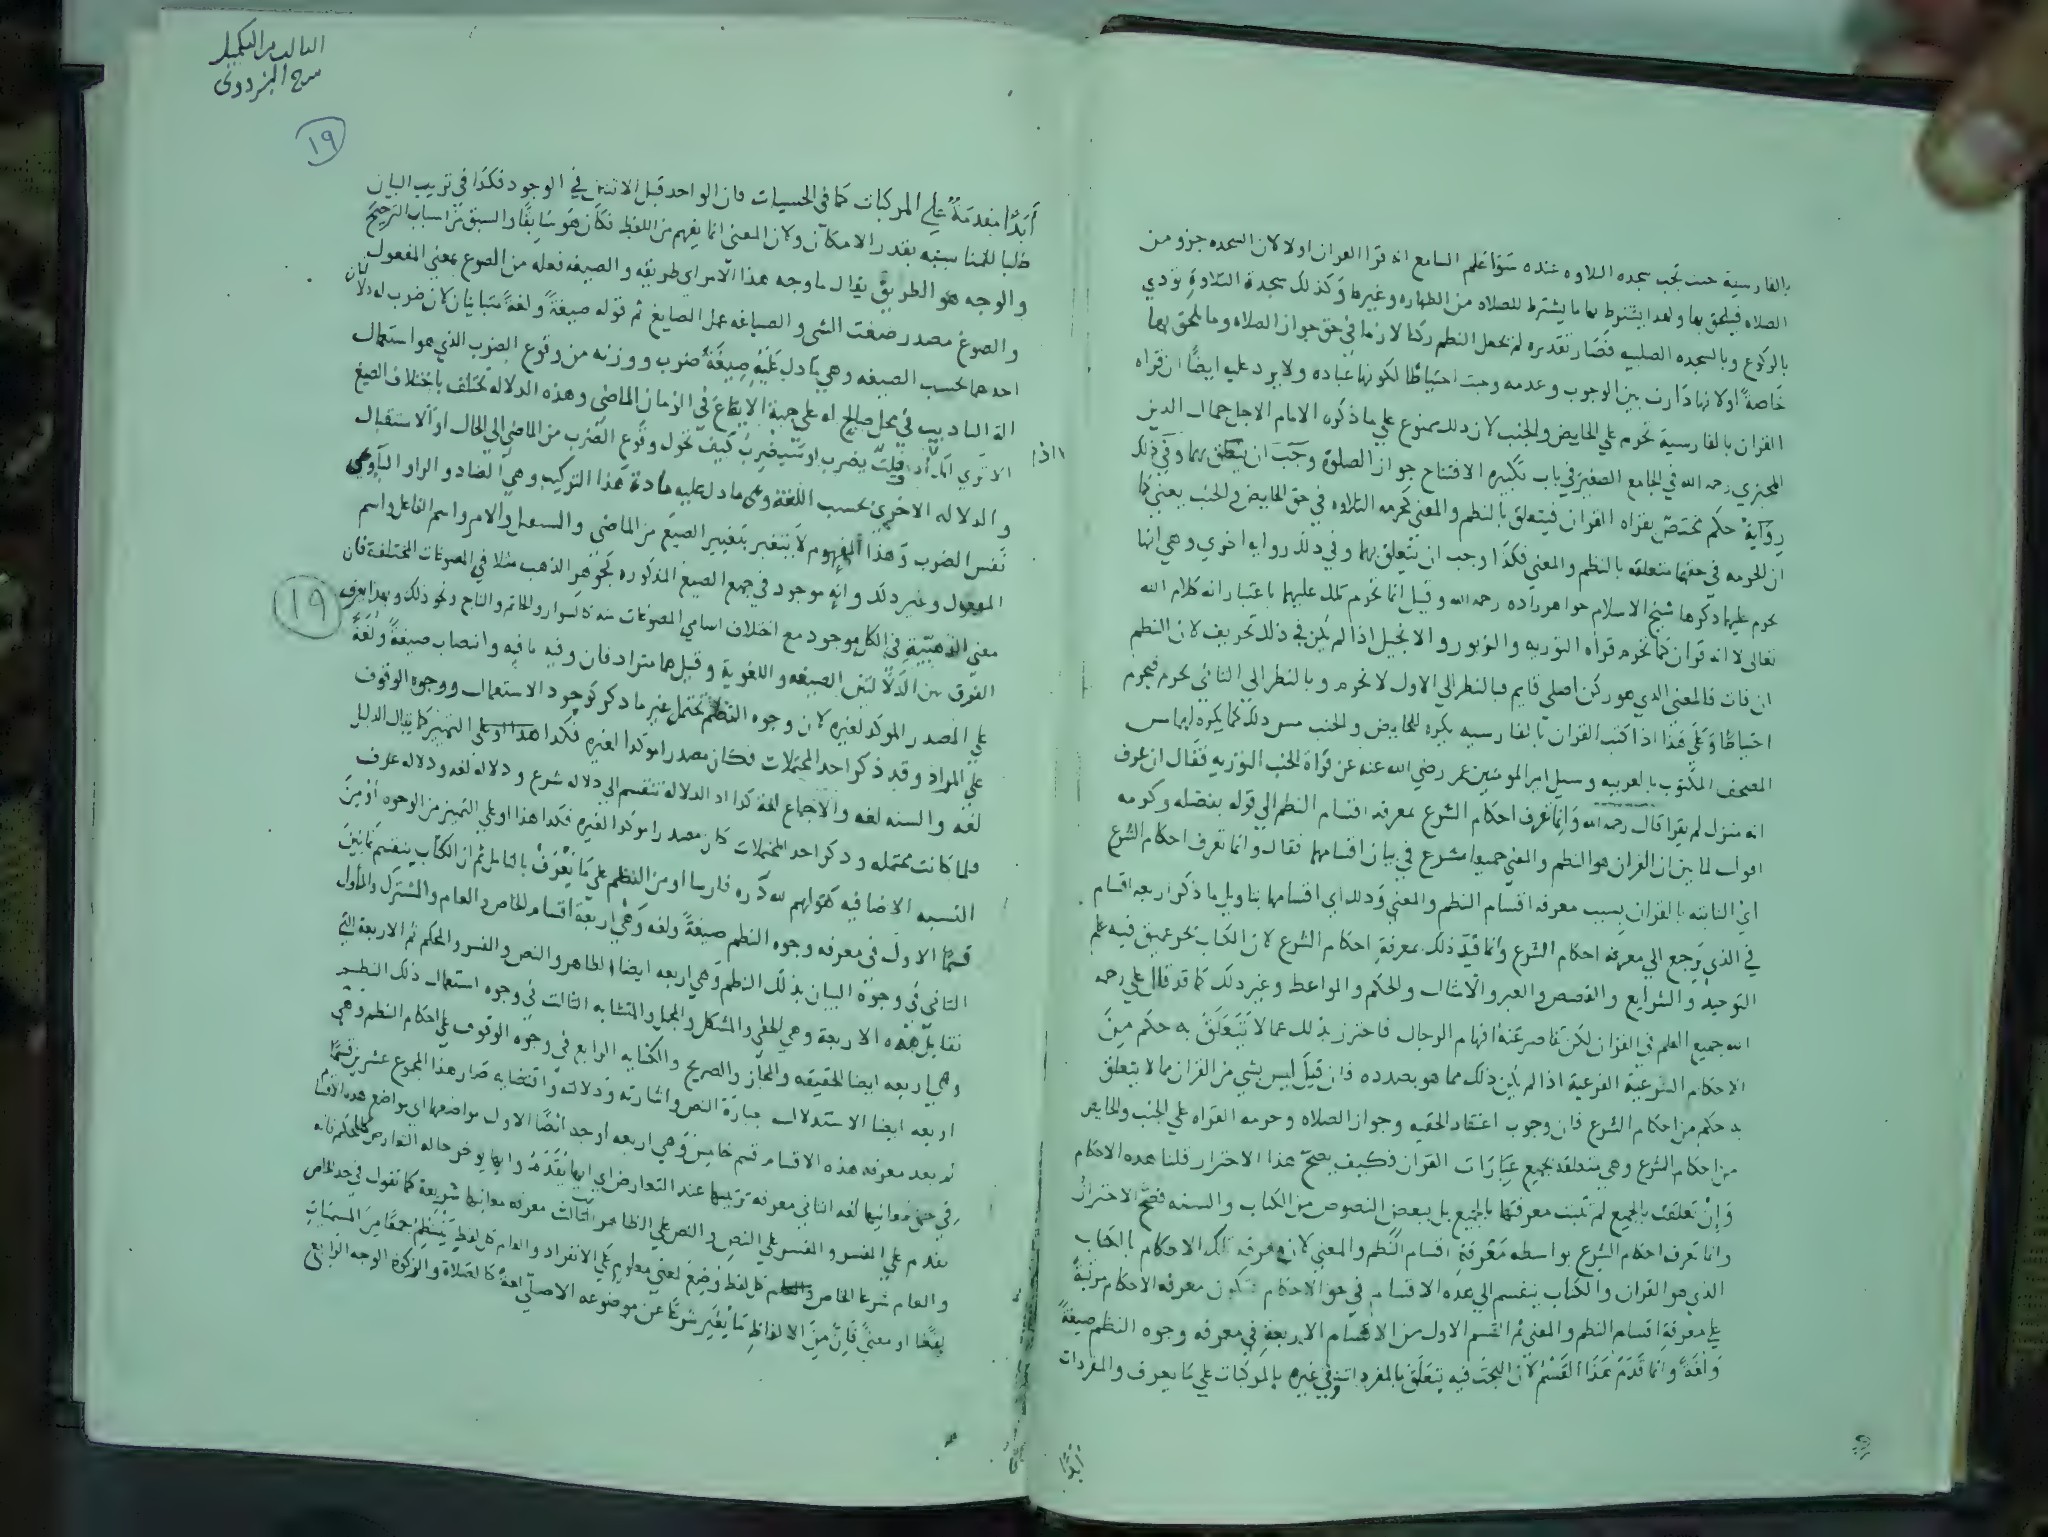 بالفارسية حيث تجب سجده التلاوه عنده سوا علم السامع انه قرا القران اولا لان السجده جزو من
الصلاه فيلحق بها ولهذا يشترط لها ما يشترط للصلاه من الطهاره وغيرها وكذلك سجدة التلاوة تودي
بالركوع وبالسجده الصلبيه فصار تقديره لم نجعل النظم ركنا لازما في حق جواز الصلاه وما يلحق بها
خاصة او لانها دارت بين الوجوب وعدمه وجبت احتياطا لكونها عباده ولا يرد عليه ايضا ان قراه
القران بالفارسية تحرم علي الحايض والجنب لان ذلك ممنوع علي ما ذكره الامام الاجل جمال الدين
رحمه الله في الجامع الصغير في باب تكبيره الافتتاح جواز الصلوة وجب ان يتعلق بهما وفي ذلك
رواية حكم تختص بقراه القران فيتعلق بالنظم والمعني كحرمه التلاوه في حق الحايض والجنب يعني كما
ان الحرمه في حقهما متعلقه بالنظم والمعني فكذا وجب ان يتعلق بهما وفي ذلك روايه اخري وهي انها
تحرم عليهما ذكرها شيخ الاسلام خواهرزاده رحمه الله وقيل انما تحرم تلك عليهما باعتبار انه كلام الله
تعالي لا انه قران كما تحرم قراه التوريه والزبور والانجيل اذا لم يكن في ذلك تحريف لان النظم
ان فات فالمعني الذي هو ركن اصلي قايم فبالنظر الي الاول لا تحرم وبالنظر الي الثاني يحرم فيحرم
احتياطا وعلي هذا اذا كتب القران بالفارسيه يكره للحايض والجنب مس ذلك كما يكره لهما مس
المصحف المكتوب بالعربيه وسيل امير المومنين عمر رضي الله عنه عن قراة الجنب التوريه فقال ان عرف
انه منزل لم يقرا قال رحمه الله وانما تعرف احكام الشرع بمعرفه اقسام النظم الي قوله بفضله وكرمه
اقول لما بين ان القران هو النظم والمعني جميعا شرع في بيان اقسامهما فقال وانما تعرف احكام الشرع
اي الثابته بالقران بسبب معرفه اقسام النظم والمعني وذلك اي اقسامهما بتاويل ما ذكر اربعه اقسام
في الذي يرجع الي معرفه احكام الشرع وانما قيد ذلك بمعرفة احكام الشرع لان الكتاب بحر عميق فيه علم
التوحيد والشرايع والقصص والعبر والامثال والحكم والمواعظ وغير ذلك كما قد قال علي رحمه
الله جميع العلم في القران لكن تقاصر عنه افهام الرجال فاحترز بذلك عما لا تتعلق به حكم من
الاحكام الشرعية الفرعية اذا لم يكن ذلك مما هو بصدده فان قيل ليس شي من القران مما لا يتعلق
به حكم من احكام الشرع فان وجوب اعتقاد الحقيه وجواز الصلاه وحرمه القراه علي الجنب والحايض
من احكام الشرع وهي متعلقه بجميع عبارات القران فكيف يصح هذا الاحتراز قلنا هذه الاحكام
وان تعلقت بالجميع لم تثبت معرفتها بالجميع بل ببعض النصوص من الكتاب والسنه فصح الاحتراز
وانما تعرف احكام الشرع بواسطه معرفة اقسام النظم والمعني لان معرفه تلك الاحكام بالكتاب
الذي هو القران والكتاب ينقسم الي هذه الاقسام في حق الاحكام فتكون معرفه الاحكام مرتبة
علي معرفة اقسام النظم والمعني ثم القسم الاول من الاقسام الاربعة في معرفه وجوه النظم صيغة
ولغة وانما قدم هذا القسم لان البحث فيه يتعلق بالمفردات وفي غيره بالمركبات علي ما يعرف والمفردات
ابدا
الثالث من التكميل
شرح البزدوي
١٩
ابدا متقدمة علي المركبات كما في الحسيات فان الواحد قبل الاثنين في الوجود فكذا في ترتيب البيان
طلبا للمناسبه بقدر الامكان ولان المعني انما يفهم من اللفظ فكان هو سابقا والسبق من اسباب الترجيح
والوجه هو الطريق يقال ما وجه هذا الامر اي طريقه والصيغه فعله من الصوغ بمعني المفعول
والصوغ مصدر صغت الشي والصياغه عمل الصايغ ثم قوله صيغة ولغة متباينان لان ضرب له دلالتان
احدهما بحسب الصيغه وهي ما دل عليه صيغة ضرب ووزنه من وقوع الضرب الذي هو استعمال
اله التاديب في محل صالح له علي جهة الايقاع في الزمان الماضي وهذه الدلاله تختلف باختلاف الصيغ
الا تري انك اذا قلت يضرب او سيضرب كيف تحول وقوع الضرب من الماضي الي الحال او الاستقبال
والدلاله الاخري بحسب اللغة وهي ما دل عليه مادة هذا التركيب وهي الضاد والراء والباء وهي
نفس الضرب وهذا المفهوم لا يتغير بتغيير الصيغ من الماضي والمستقبل والامر واسم الفاعل واسم
المفعول وغير ذلك وانه موجود في جميع الصيغ المذكوره كجوهر الذهب مثلا في المصوغات المختلفة فان
معني الذهبية في الكل موجود مع اختلاف اسامي المصوغات منه كالسوار والخاتم والتاج ونحو ذلك وبهذا يعرف
١٩
الفرق بين الدلالتين الصيغيه واللغوية وقيل هما مترادفان وفيه ما فيه وانتصاب صيغة ولغة
علي المصدر الموكد لغيره لان وجوه النظم تحتمل غير ما ذكر كوجوه الاستعمال ووجوه الوقوف
علي المراد وقد ذكر احد المحتملات فكان مصدرا موكدا لغيره فكذا هذا او علي التمييز كما يقال الدليل
لغه والسنه لغه والاجماع لغه كذا اذ الدلالة تنقسم الي دلاله شرع ودلاله لغه ودلاله عرف
فلما كانت محتمله وذكر احد المحتملات كان مصدرا موكدا لغيره فكذا هذا او علي التمييز من الوجوه او من
النسبه الاضافيه كقولهم لله دره فارسا او من النظم علي ما يعرف بالتامل ثم ان الكتاب ينقسم ثمانين
قسما الاول في معرفه وجوه النظم صيغة ولغه وهي اربعة اقسام الخاص والعام والمشترك والمأول
الثاني في وجوه البيان بذلك النظم وهي اربعه ايضا الظاهر والنص والمفسر والمحكم ثم الاربعة التي
تقابل هذه الاربعة وهي الخفي والمشكل والمجمل والمتشابه الثالث في وجوه استعمال ذلك النظم
وهي اربعه ايضا الحقيقه والمجاز والصريح والكنايه الرابع في وجوه الوقوف علي احكام النظم وهي
اربعه ايضا الاستدلال بعبارة النص واشارته ودلالته واقتضايه صار هذا المجموع عشرين قسما
ثم بعد معرفه هذه الاقسام قسم خامس وهي اربعه اوجه ايضا الاول مواضعها اي مواضع هذه الاقسام
في حق معانيها لغه الثاني معرفه ترتيبها عند التعارض اي ايها يقدم وايها يوخر حاله التعارض كالمحكم فانه
يقدم علي المفسر والمفسر علي النص والنص علي الظاهر الثالث معرفه معانيها شريعة كما نقول في حد الخاص
والعام شرعا الخاص كل لفظ وضع لمعني معلوم علي الانفراد والعام كل لفظ ينتظم جمعا من المسميات
لفظا او معني فان من الالفاظ ما يغير شرعا عن موضوعه الاصلي لغة كالصلاة والزكوة الوجه الرابع